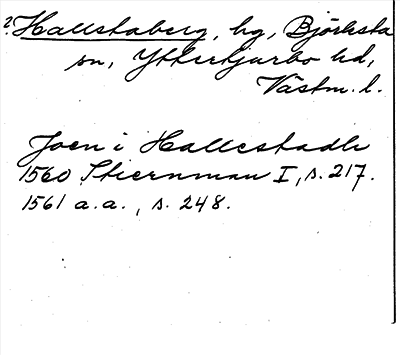 2. Hallstaberg, hg, Björksta
sn, Yttertjurbo hd,
Västm. l.
Joen i Hallestadh
1560 Stiernman I, s. 217.
1561 a.a., s. 248.